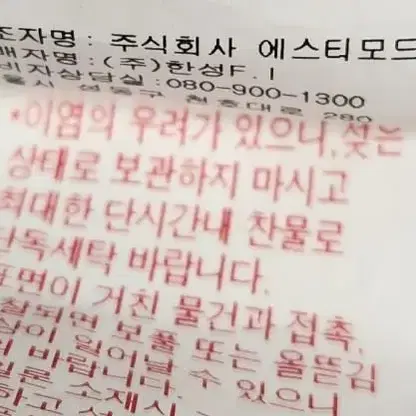 조자명 : 주식회사 에스티모드
매자명 : (주)한성F.I
비자상담실 : 080-900-1300
울시 성동구 천호대로 280
*이염의 우려가 있으니, 젖은
상태로 보관하지 마시고
최대한 단시간내 찬물로
단독세탁 바랍니다.
표면이 거친 물건과 접촉,
마찰되면 보풀 또는 올뜯김
현상이 일어날 수 있으니
바랍니다.
소재시